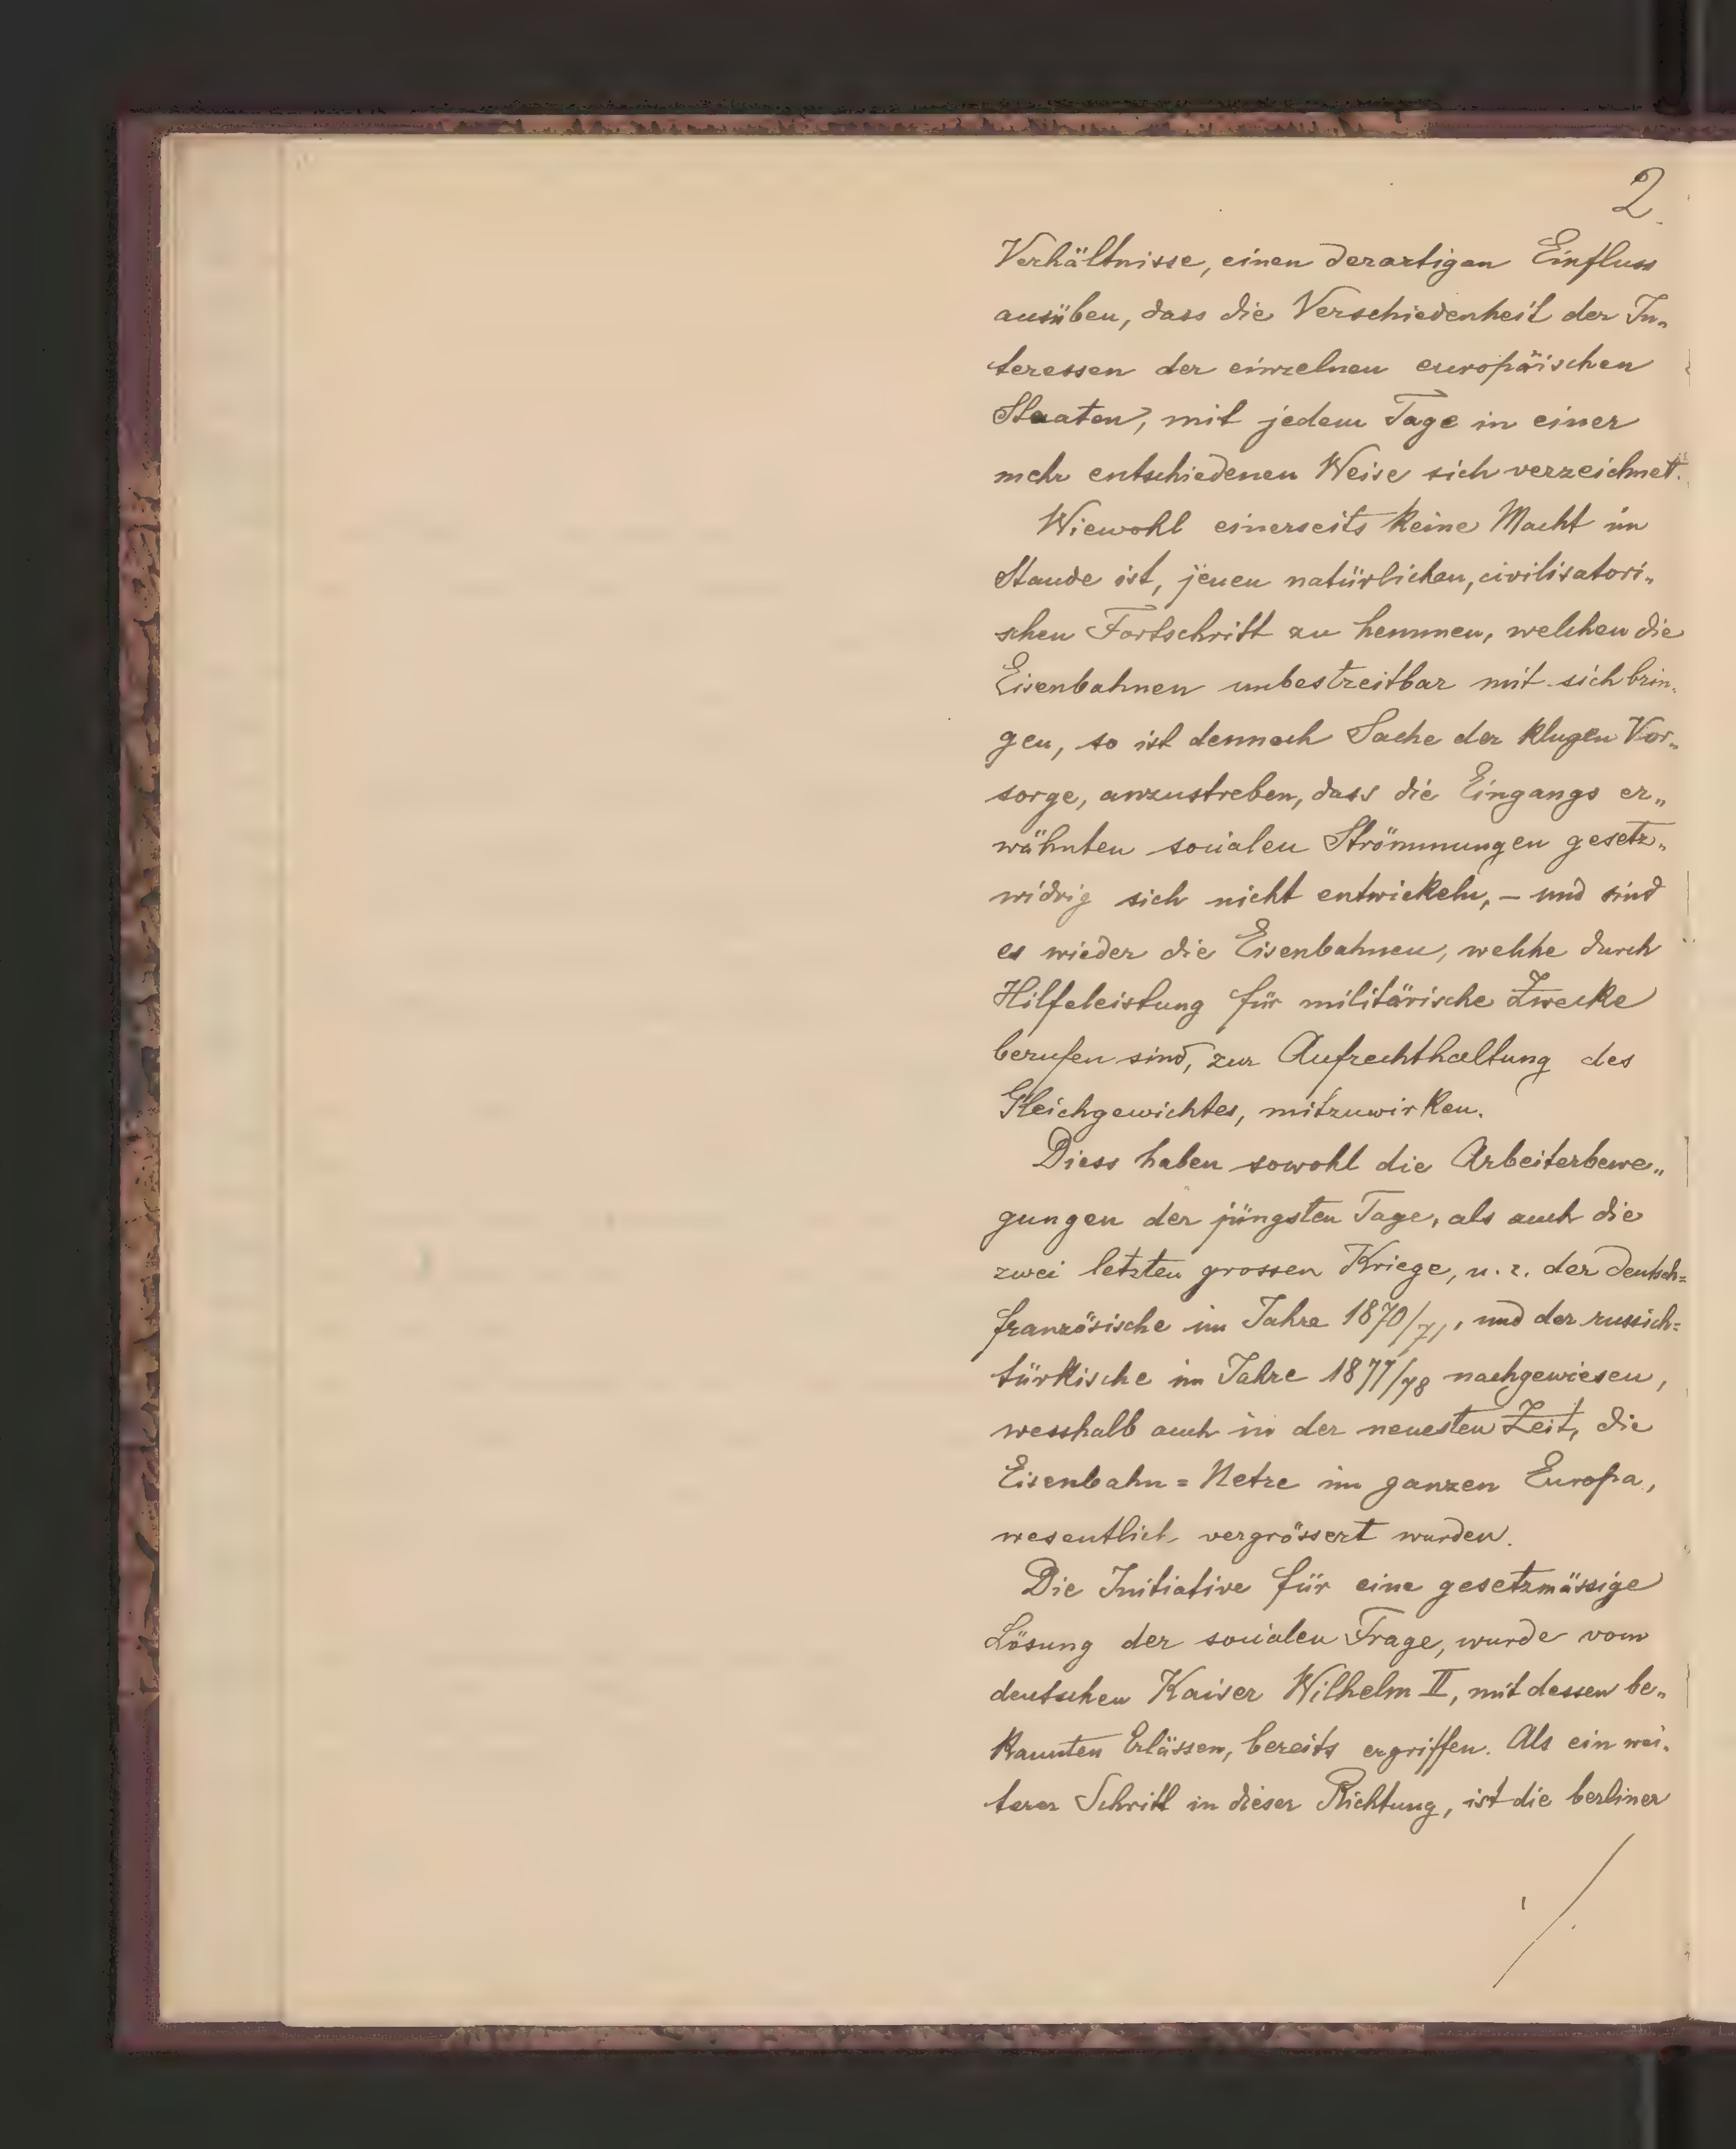 2.
Verhältnisse, einen derartigen Einfluss
ausüben, dass die Verschiedenheit der In„
teressen der einzelnen europäischen
Staaten, mit jedem Tage in einer
mehr entschiedenen Weise sich verzeichnet.
Wiewohl einerseits keine Macht im
Stande ist, jenen natürlichen, civilisatori„
schen Fortschritt zu hemmen, welchen die
Eisenbahnen unbestreitbar mit sich brin„
gen, so ist dennoch Sache der klugen Vor„
sorge, anzustreben, dass die Eingangs er„
wähnten socialen Strömmungen gesetz„
widrig sich nicht entwickeln, – und sind
es wieder die Eisenbahnen, welche durch
Hilfeleistung für militärische Zwecke
berufen sind, zur Aufrechthaltung des
Gleichgewichtes, mitzuwirken.
Diess haben sowohl die Arbeiterbewe„
gungen der jüngsten Tage, als auch die
zwei letzten grossen Kriege, u. z. der deutsch=
französische im Jahre 1870/71, und der russich=
türkische im Jahre 1877/78 nachgewiesen,
wesshalb auch in der neuesten Zeit, die
Eisenbahn=Netze im ganzen Europa,
wesentlich vergrössert wurden.
Die Initiative für eine gesetzmässige
Lösung der socialen Frage, wurde vom
deutschen Kaiser Wilhelm II, mit dessen be„
kannten Erlässen, bereits ergriffen. Als ein wei„
terer Schritt in dieser Richtung, ist die berliner
./.